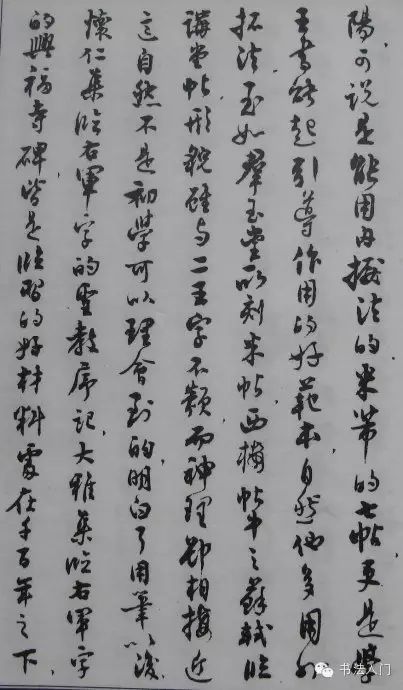 陽，可說是能用内擫法的，米芾的七帖，更是學
王書能起引導作用的好範本，自然他多用外
拓法，至如羣玉堂所刻米帖，西樓帖中之蘇軾临
講堂帖，形貌雖与二王字不類，而神理卻相接近
這自然不是初學可以理會到的，明白了用筆以後
懷仁集临右軍字的聖教序記，大雅集临右軍字
的興福寺碑皆是临習的好材料，處在千百年之下，
书法入门